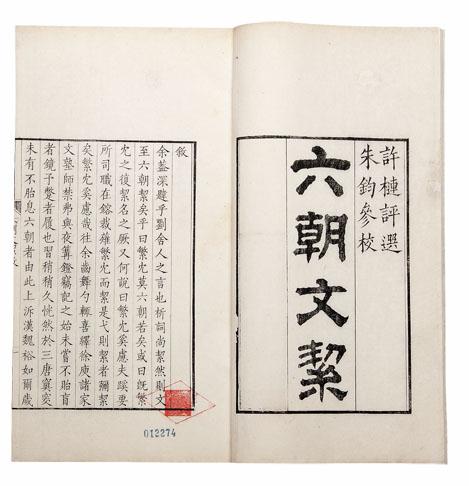 許槤評選
朱鈞參校
六朝文絜
敘
余蓋深韙乎劉舍人之言也析詞尚絜然則文
至六朝絜矣乎曰繁冗莫六朝若矣或曰旣繁
冗之復絜名之厥又何說曰繁冗奚慮夫蹊要
所司職在鎔裁薙繁冗而絜是弋則絜者彌絜
矣繁冗奚慮哉往余齒舞勺輒喜繹徐庾諸家
文塾師禁弗與夜篝鐙竊記之始未嘗不
者鏡予躄者履也習稍稍久恍然於三唐
未有不胎息六朝者由此上泝漢魏裕如爾歲
012274